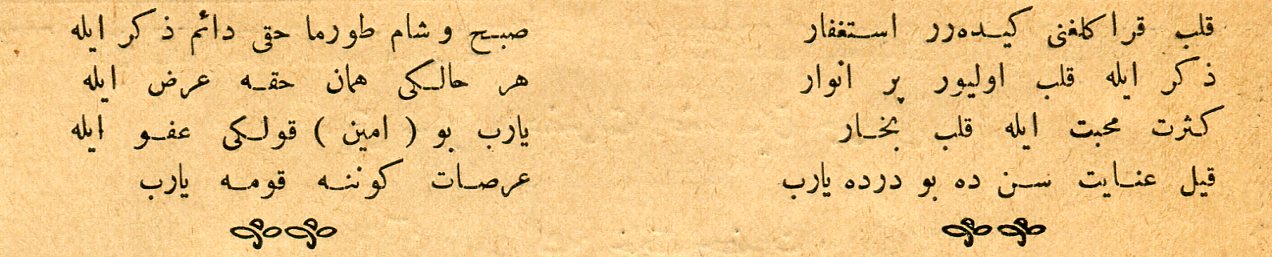 قلب قرا كلغنی كیده‌رر استغفار
ذكر ایله قلب اولیور پر انوار
كثرت محبت ایله قلب بخار
قیل عنایت سن ده بو درده یارب
صبح و شام طورما حقی دائم ذكر ایله
هر حالكی همان حقه عرض ایله
یارب بو ( امین ) قولكی عفو ایله
عرصات كوننه قومه یارب